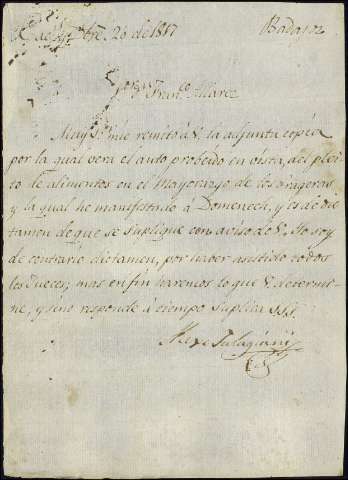 de 20 de 1817 Badajoz
Franco. Alvarez
Muy Sr. mio remito á V. la adjunta copia
por la qual verá el auto probeido en vista, del plei-
to de alimentos en el Mayorazgo de los
y la qual he manifestado á Domenech, y es de dic-
tamen de que se suplique con aviso de V. Yo soy
de contrario dictamen, por haber asistido todos
los Jueces; mas en fin haremos lo que V. determi-
ne, y sino responde á tiempo